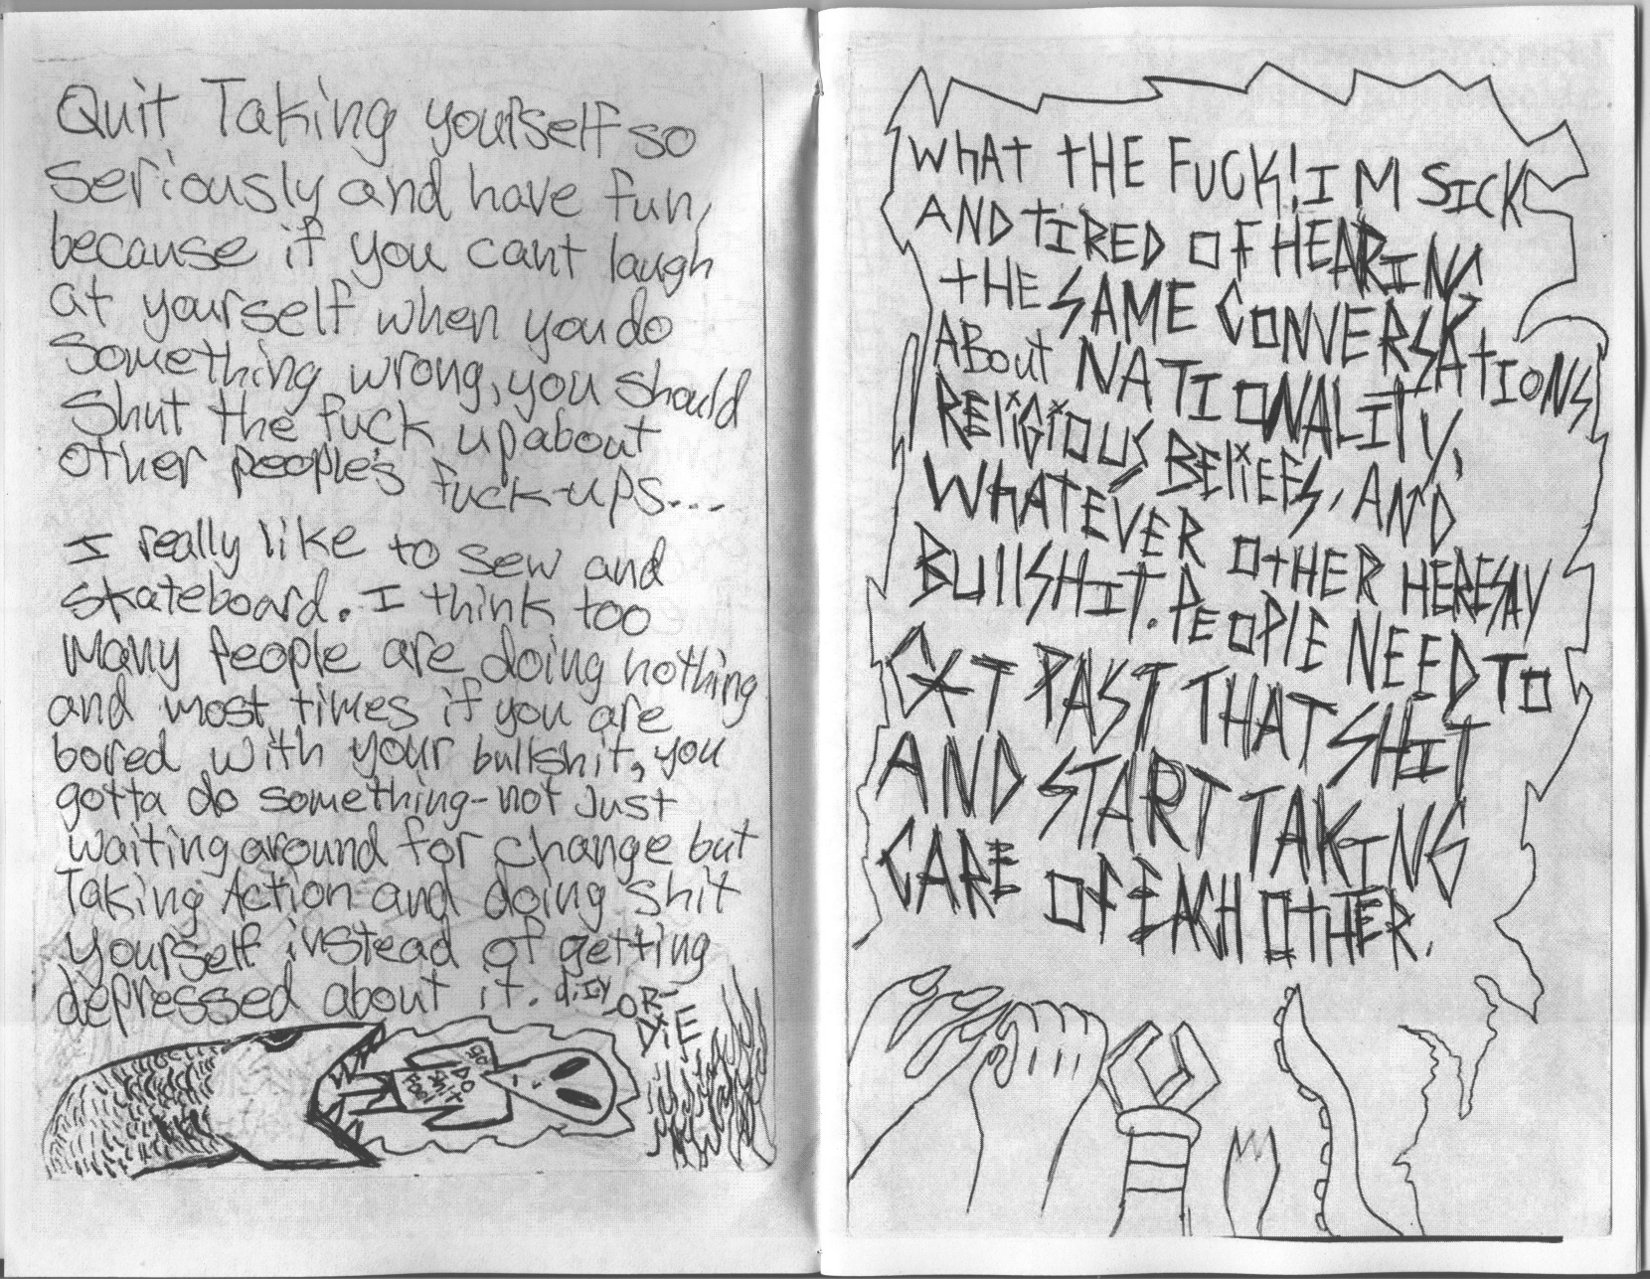 Quit Taking yourself so
seriously and have fun,
because if you cant laugh
at yourself when you do
something wrong, you should
shut the fuck up about
other people's fuck-ups...
I really like to sew and
skateboard. I think too
many people are doing nothing
and most times if you are
bored with your bullshit, you
gotta do something-not just
waiting around for change but
Taking Action and doing shit
yourself instead of getting
depressed about it. d.i.y OR
DIE
GO
DO
SHIT
WHAT THE FUCK! IM SICK
AND TIRED OF HEARING
THE SAME CONVERSATIONS
ABOUT NATIONALITY,
RELIGIOUS BELIEFS, AND
WHATEVER OTHER HERESAY
BULLSHIT. PEOPLE NEED TO
GET PAST THAT SHIT
AND START TAKING
CARE OF EACH OTHER.